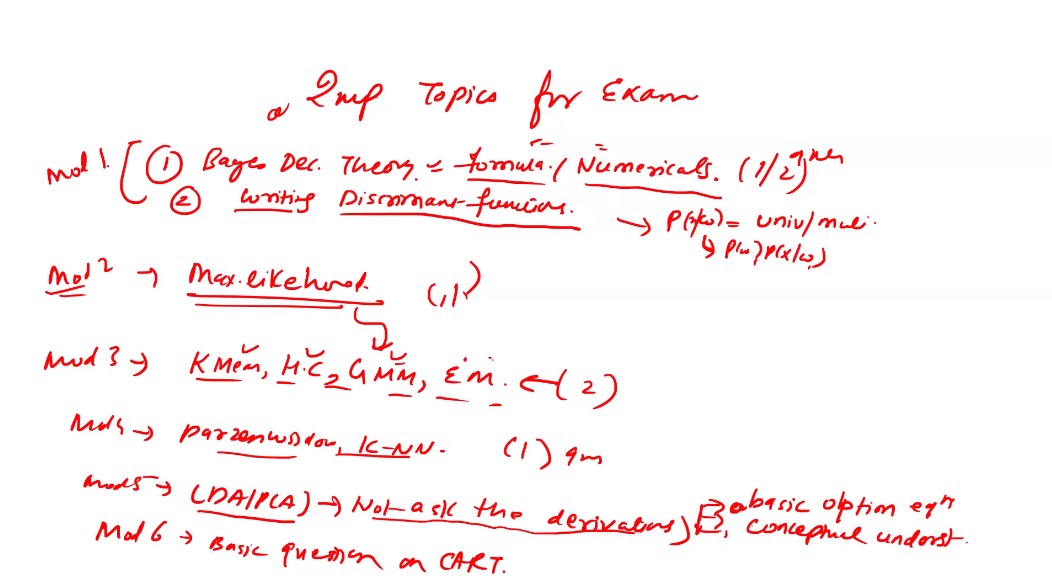 Imp Topics for Exam
Mod 1. ① Bayes Dec. Theory = formula / Numericals. (1/2)
② Writing Discriminant functions. → P(x/ω) = univ/mul.
↳ P(ω) P(x/ω)
Mod 2 → Max. likelihood. (1)
Mod 3 → K Mean, H.C, GMM, EM. ← (2)
Mod 4 → Parzen window, K-NN. (1) qn
Mod 5 → (LDA/PCA) → Not ask the derivations) basic option eqn
conceptual underst.
Mod 6 → Basic question on CART.